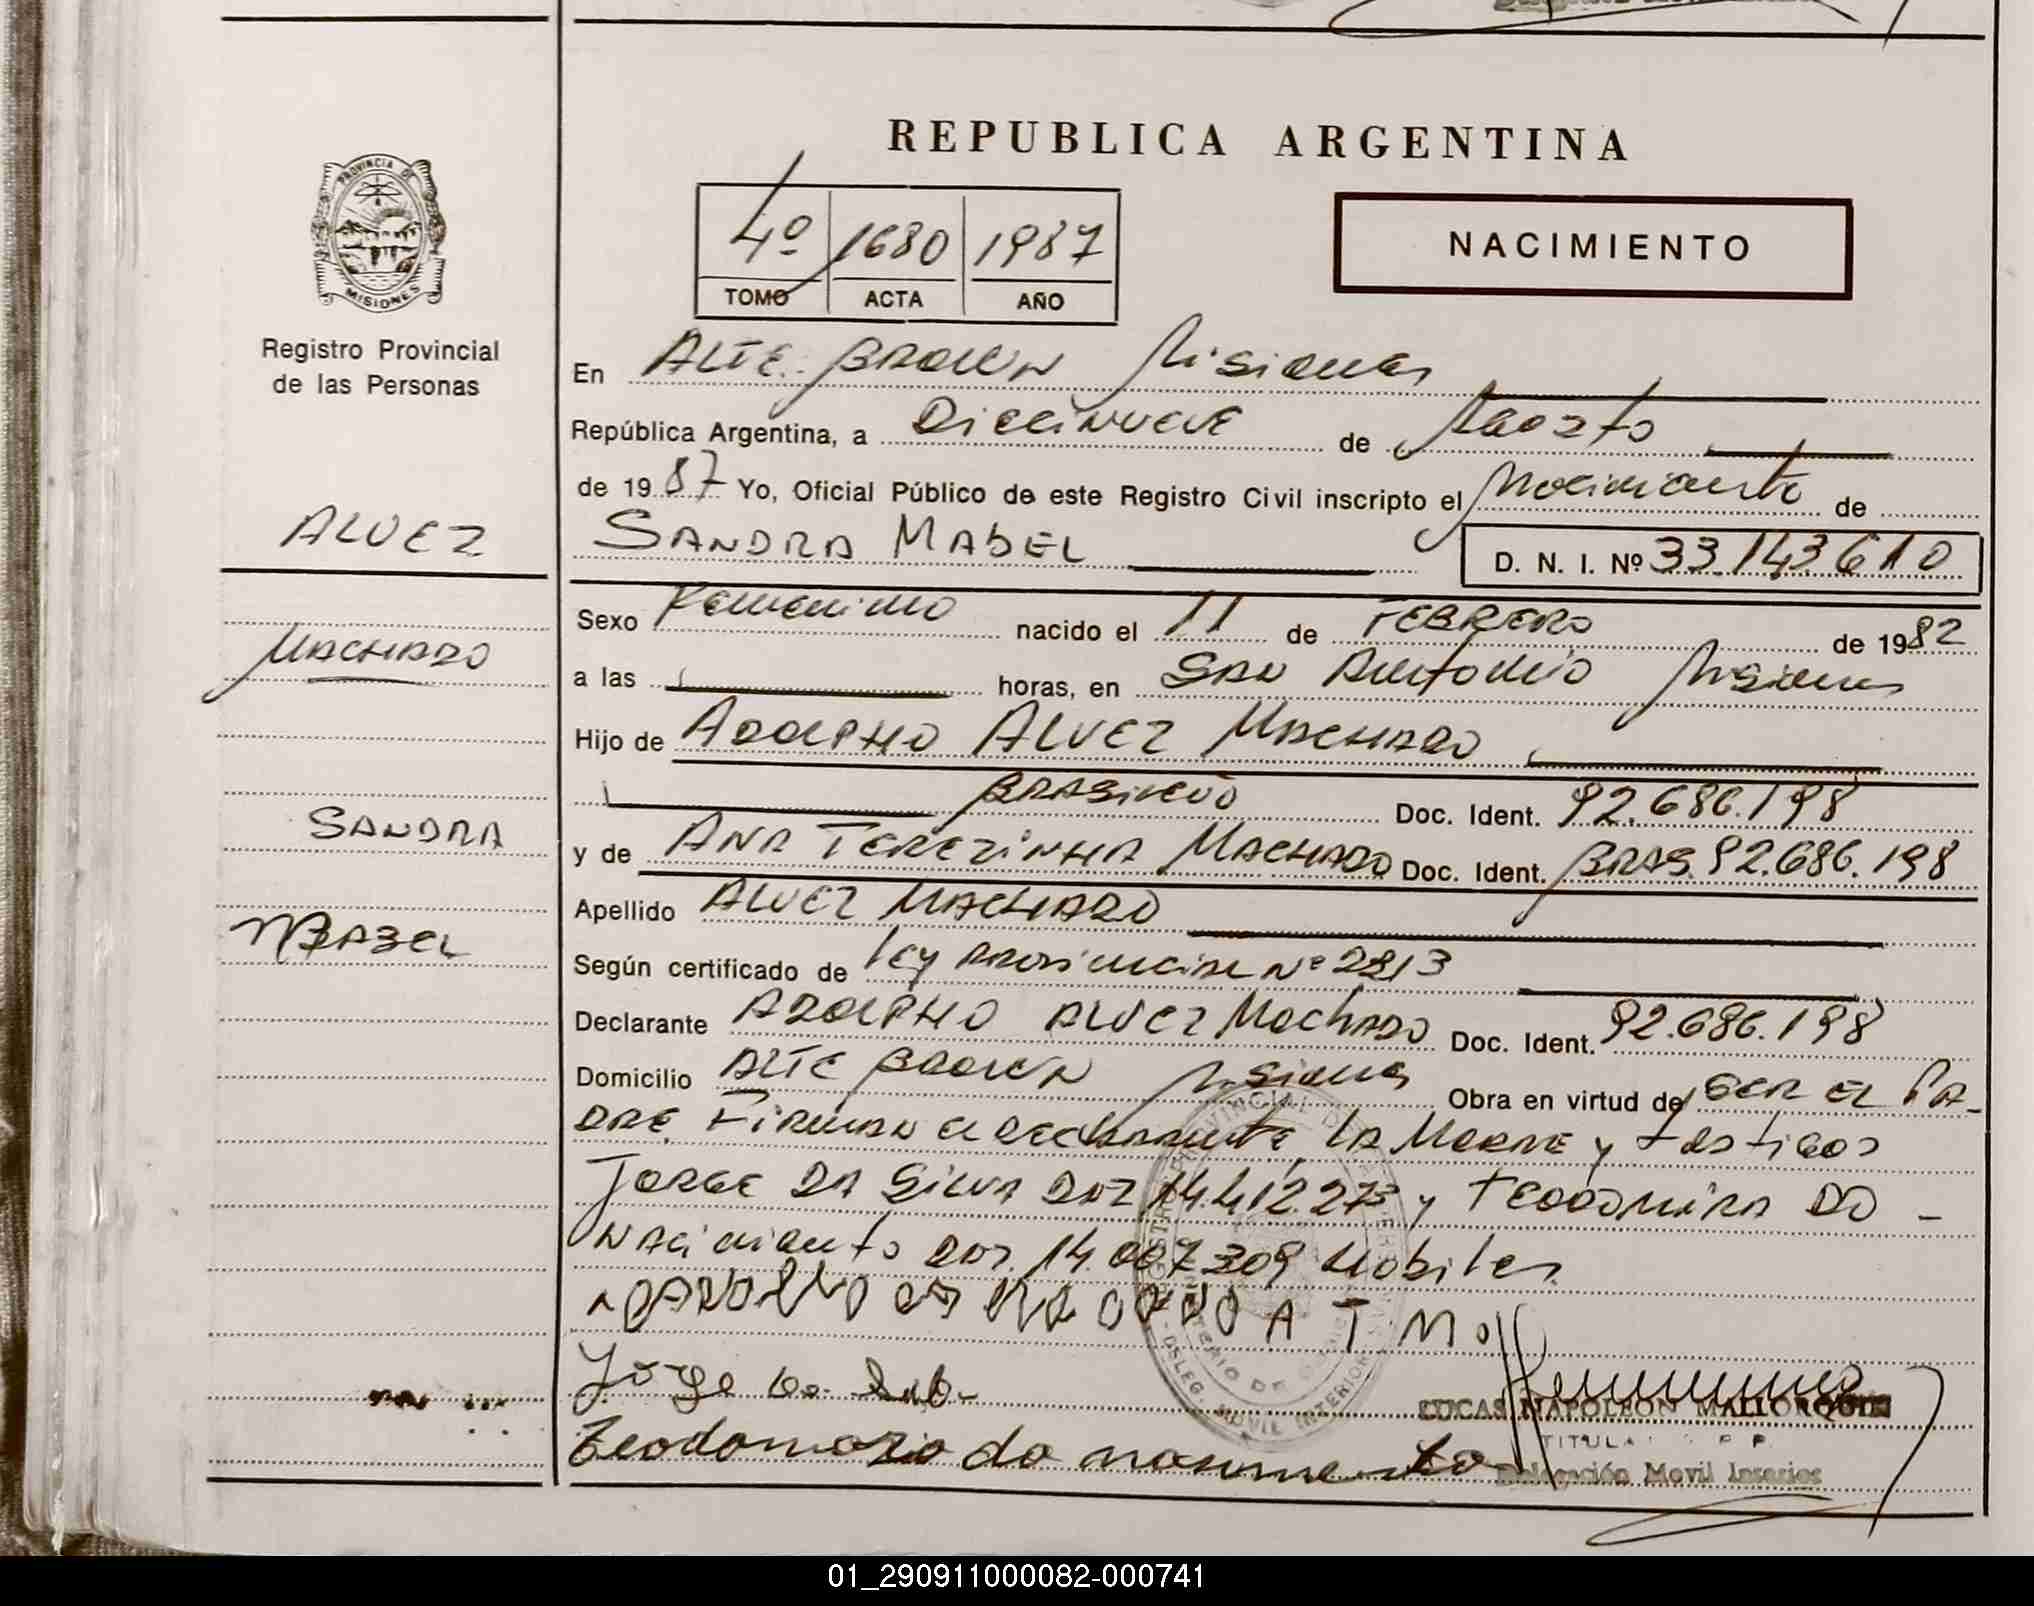 REPUBLICA ARGENTINA
PROVINCIA DE
MISIONES
Registro Provincial
de las Personas
4º 1680 1987
TOMO ACTA AÑO
NACIMIENTO
En ALTE. BROWN Misiones
República Argentina, a Diecinueve de Agosto
de 1987 Yo, Oficial Público de este Registro Civil inscripto el Nacimiento de
ALVEZ
SANDRA MABEL D. N. I. Nº 33.143.610
Sexo Femenino nacido el 11 de FEBRERO de 1982
MACHADO
a las horas, en SAN Antonio Misiones
Hijo de ADOLPHO ALVEZ MACHADO
BRASILEÑO Doc. Ident. 92.686.198
SANDRA
y de ANA TEREZINHA MACHADO Doc. Ident. BRAS. 92.686.198
Apellido ALVEZ MACHADO
MABEL
Según certificado de Ley Provincial Nº 2213
Declarante ADOLPHO ALVEZ Machado Doc. Ident. 92.686.198
Domicilio ALTE BROWN Misiones Obra en virtud de SER EL PA-
DRE Firman el declarante, LA MADRE y testigos
JORGE DA SILVA 14.412.273 y TEODOMIRA DO -
Nacimiento 14.007.309 Hobiles
A T M
Jorge
do
LUCAS NAPOLEON MALLORQUIN
TITULAR
Delegación Movil Interior
01_290911000082-000741